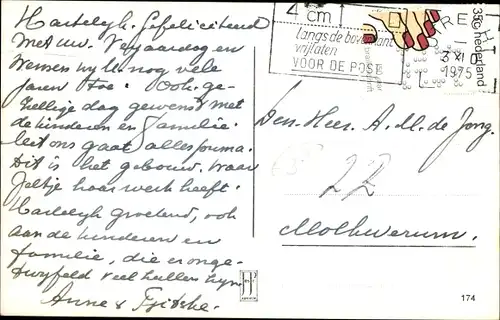 Hartelijk. Gefeliciteerd
met uw. Verjaardag en
wensen wij U. nog vele
jaren toe. Ook. ge-
zellige dag gewenst met
de kinderen en Familie.
ons gaat alles prima.
Dit is het gebouw. waar
Jeltje haar werk heeft.
Hartelijk groetend, ook
aan de kinderen en
familie, die er onge-
twijfeld veel zullen zijn
Anne & Tjitske.
4 cm
langs de bovenkant
vrijlaten
VOOR DE POST
3 XI
1975
35c nederland
Den. Heer. A. M. de Jong.
22
Molkwerum.
174